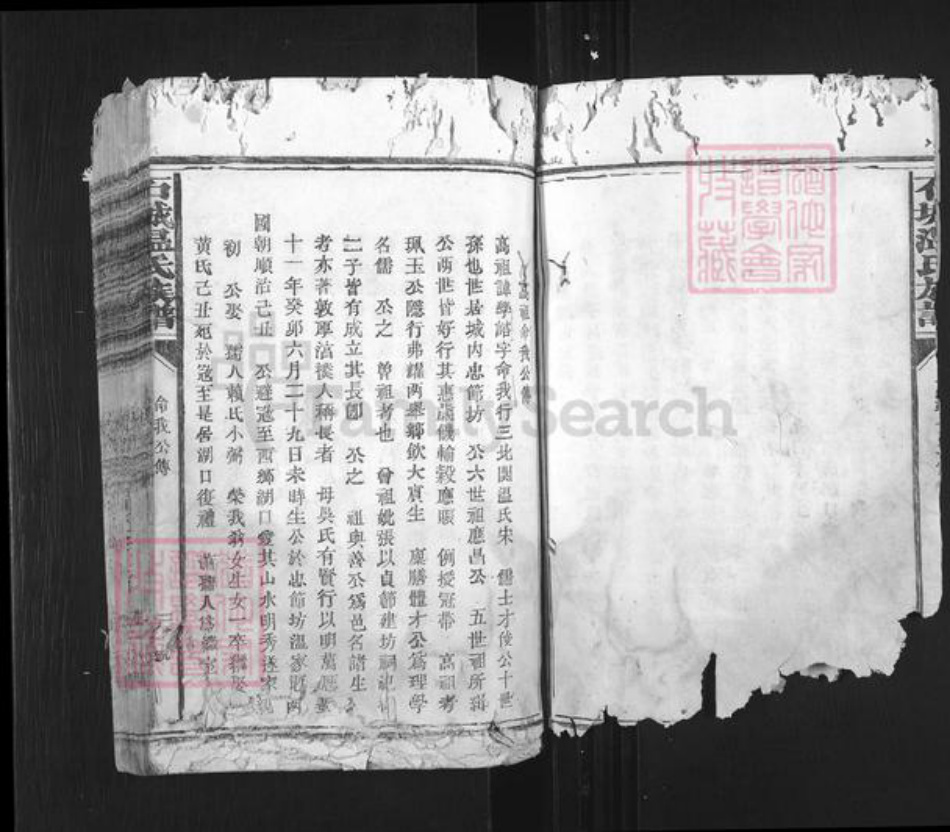 石城溫氏族譜
高祖命我公傳
高祖諱學 字命我行三北關溫氏宋 儒士才俊公十世
孫也世居城內忠節坊 公六世祖應昌公 五世祖所
公兩世皆好行其惠 輸穀應賑 例授冠帶 高祖考
珮玉公隱行弗耀兩舉鄉飲大賓生 廩膳體才公為理學
名儒 公之 曾祖考也 曾祖妣張以貞節建坊
二子皆有成立其長即 公之 祖與善公為邑名諸生
考亦著敦厚 人稱長者 母吳氏有賢行以明萬曆
十一年癸卯六月二十九日未時生公於忠節坊溫家
國朝順治己丑 公避寇至西鄉湖口愛其山水明秀遂家
初 公娶 孺人賴氏小弼 榮我翁女生女一卒
黃氏己丑 於寇至是居湖口復禮 孺人為繼室
命我公傳
石城溫氏族譜
德他家譜學會特藏
FamilySearch